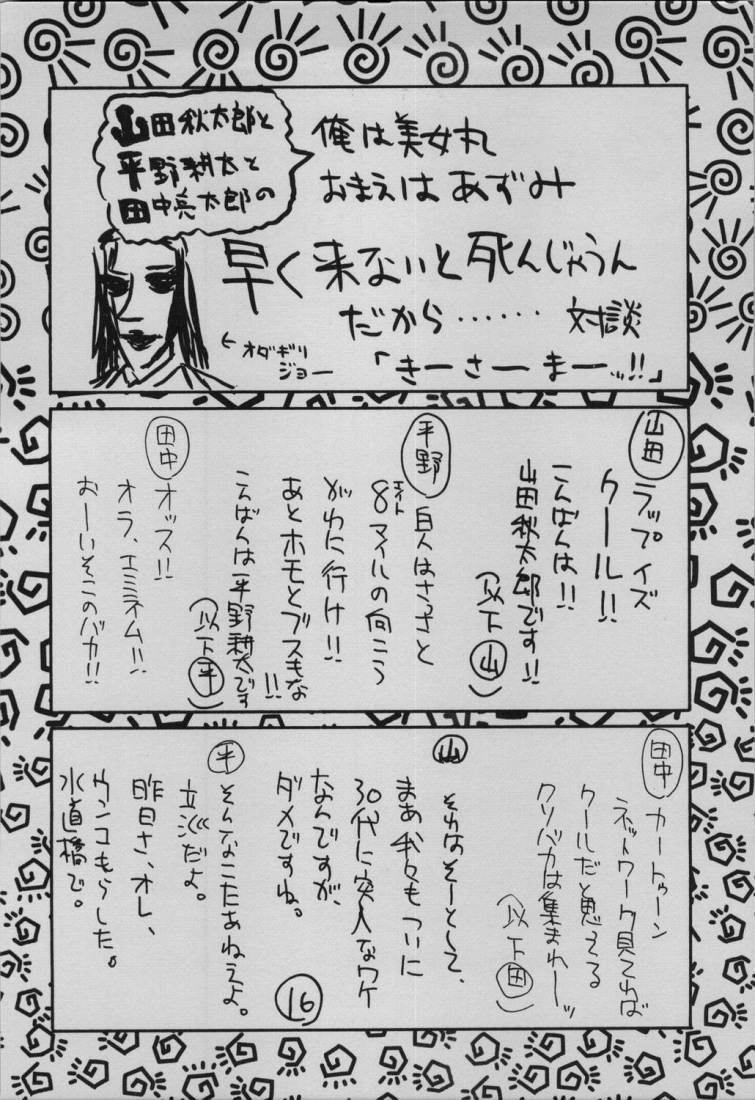 山田秋太郎と
平野耕太と
田中亮太郎の
俺は美女丸
おまえはあずみ
早く来ないと死んじゃうん
だから‥‥‥対談
「きーさーまーッ!!」
←オダギリ
ジョー
山田
ラップイズ
クール!!
こんばんは!!
山田秋太郎です!!
(以下山)
平野
白人はさっさと
8マイルの向こう
エイト
がわに行け!!
あとホモとブスもな!!
こんばんは平野耕太です
(以下平)
田中
オッス!!
オラ、エミネム!!
おーいそこのバカ!!
田中
カートゥーン
ネットワーク見てれば
クールだと思てる
クソバカは集まれーッ
(以下田)
山
それはそーとして、
まあ我々もついに
30代に突入なワケ
なんですが、
ダメですね。
平
そんなこたあねえよ。
立派だよ。
昨日さ、オレ、
ウンコもらした。
水道橋で。
16